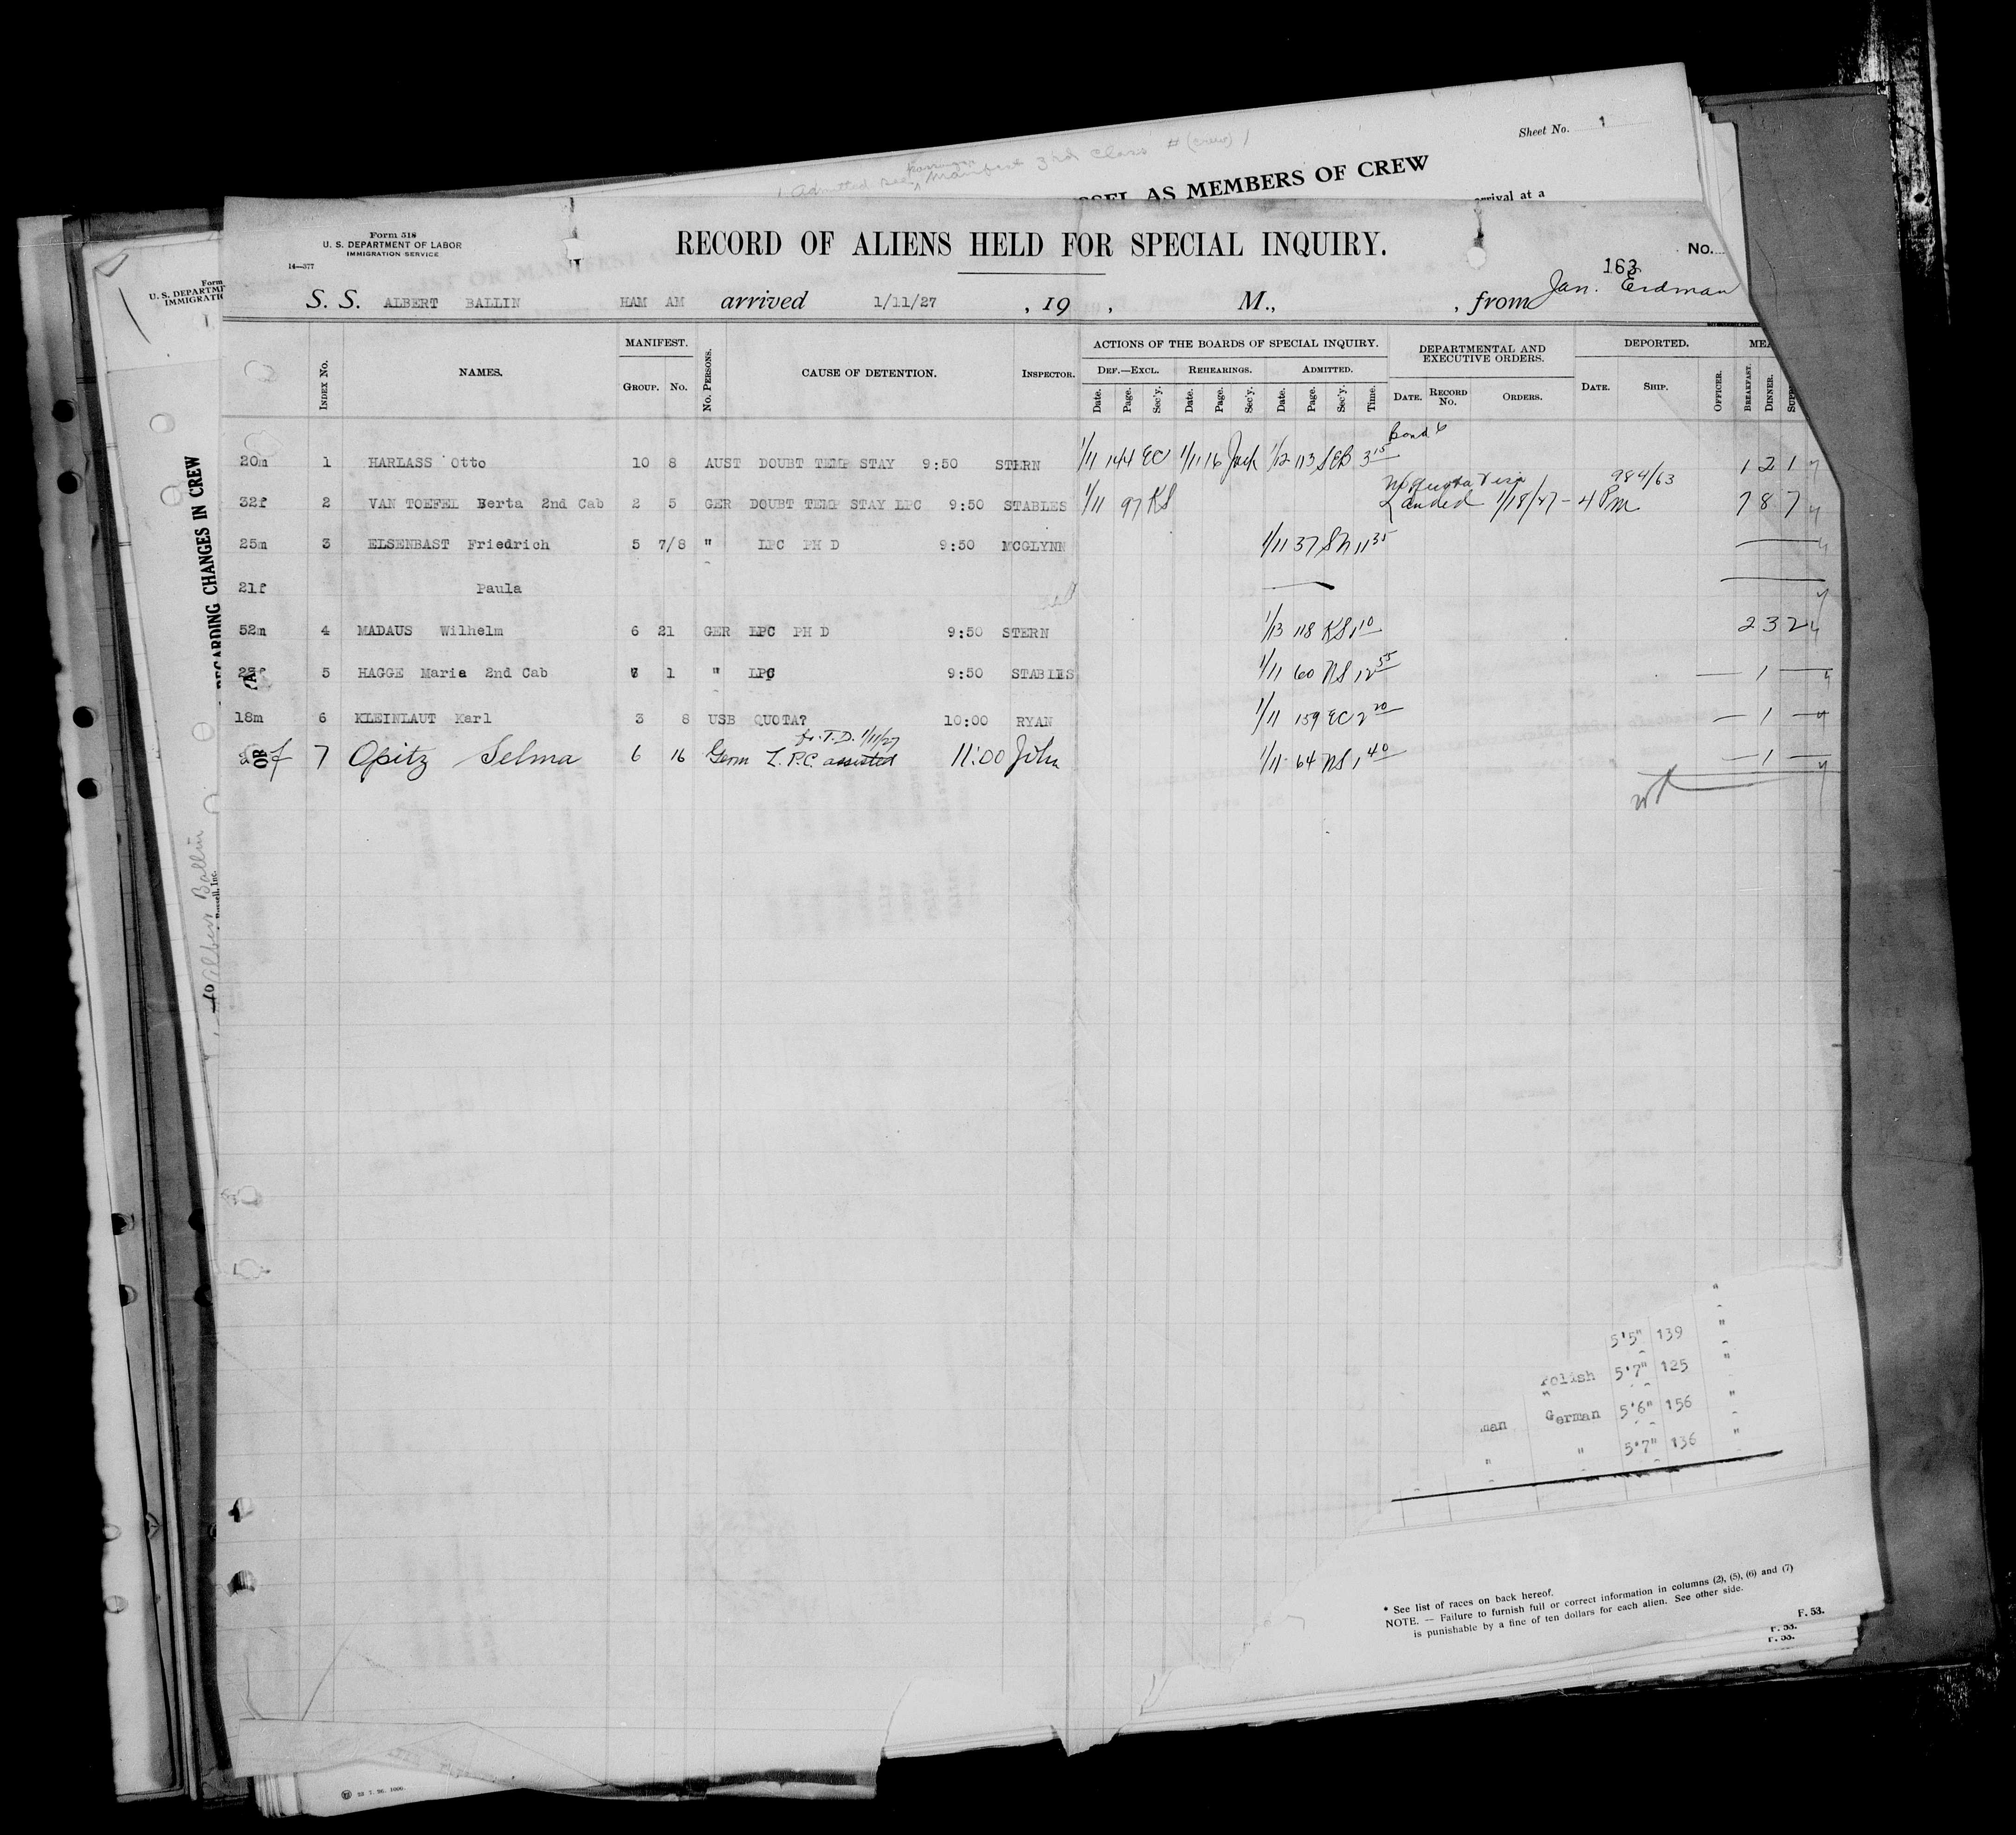 Sheet No. 1
Admitted see passenger Manifest 3rd Class # (crew) 1
AS MEMBERS OF CREW
arrival at a
Form 518
U. S. DEPARTMENT OF LABOR
IMMIGRATION SERVICE
14—377
RECORD OF ALIENS HELD FOR SPECIAL INQUIRY.
No.
163
S. S. ALBERT BALLIN HAM AM arrived 1/11/27 , 19 , M., , from Jan. Erdman
Index No. NAMES. MANIFEST. Group. No. No. Persons. CAUSE OF DETENTION. Inspector. ACTIONS OF THE BOARDS OF SPECIAL INQUIRY. DEPARTMENTAL AND EXECUTIVE ORDERS. DEPORTED.
Def.—Excl. Rehearings. Admitted.
Date. Page. Sec'y. Date. Page. Sec'y. Date. Page. Sec'y. Time. Date. Record No. Orders. Date. Ship. Officer. Breakfast. Dinner.
Bond 6
20m 1 HARLASS Otto 10 8 AUST DOUBT TEMP STAY 9:50 STERN 1/11 144 EC 1/11 16 Jack 1/12 113 SEB 3 15 1 2 1
No Quota Visa 984/63
32f 2 VAN TOEFEL Berta 2nd Cab 2 5 GER DOUBT TEMP STAY LPC 9:50 STABLES 1/11 97 KS Landed 1/18/27 - 4 PM 7 8 7
25m 3 ELSENBAST Friedrich 5 7/8 " LPC PH D 9:50 MCGLYNN 1/11 37 SN 11 35
21f Paula
52m 4 MADAUS Wilhelm 6 21 GER LPC PH D 9:50 STERN 1/13 118 KS 1 10 2 3 2
5 HAGGE Marie 2nd Cab 1 " LPC 9:50 STABLES 1/11 60 NS 12 55 — 1 —
18m 6 KLEINLAUT Karl 3 8 USB QUOTA? 10:00 RYAN 1/11 159 EC 2 20 — 1 —
T.D. 1/11/27
f 7 Opitz Selma 6 16 Germ L.P.C. assisted 11:00 John 1/11 64 NS 1 40 — 1 —
REGARDING CHANGES IN CREW
Albert Ballin
5'5" 139 "
Polish 5'7" 125 "
German 5'6" 156 "
" " 5'7" 136 "
* See list of races on back hereof.
NOTE. — Failure to furnish full or correct information in columns (2), (5), (6) and (7)
is punishable by a fine of ten dollars for each alien. See other side.
F. 53.
F. 53.
F. 53.